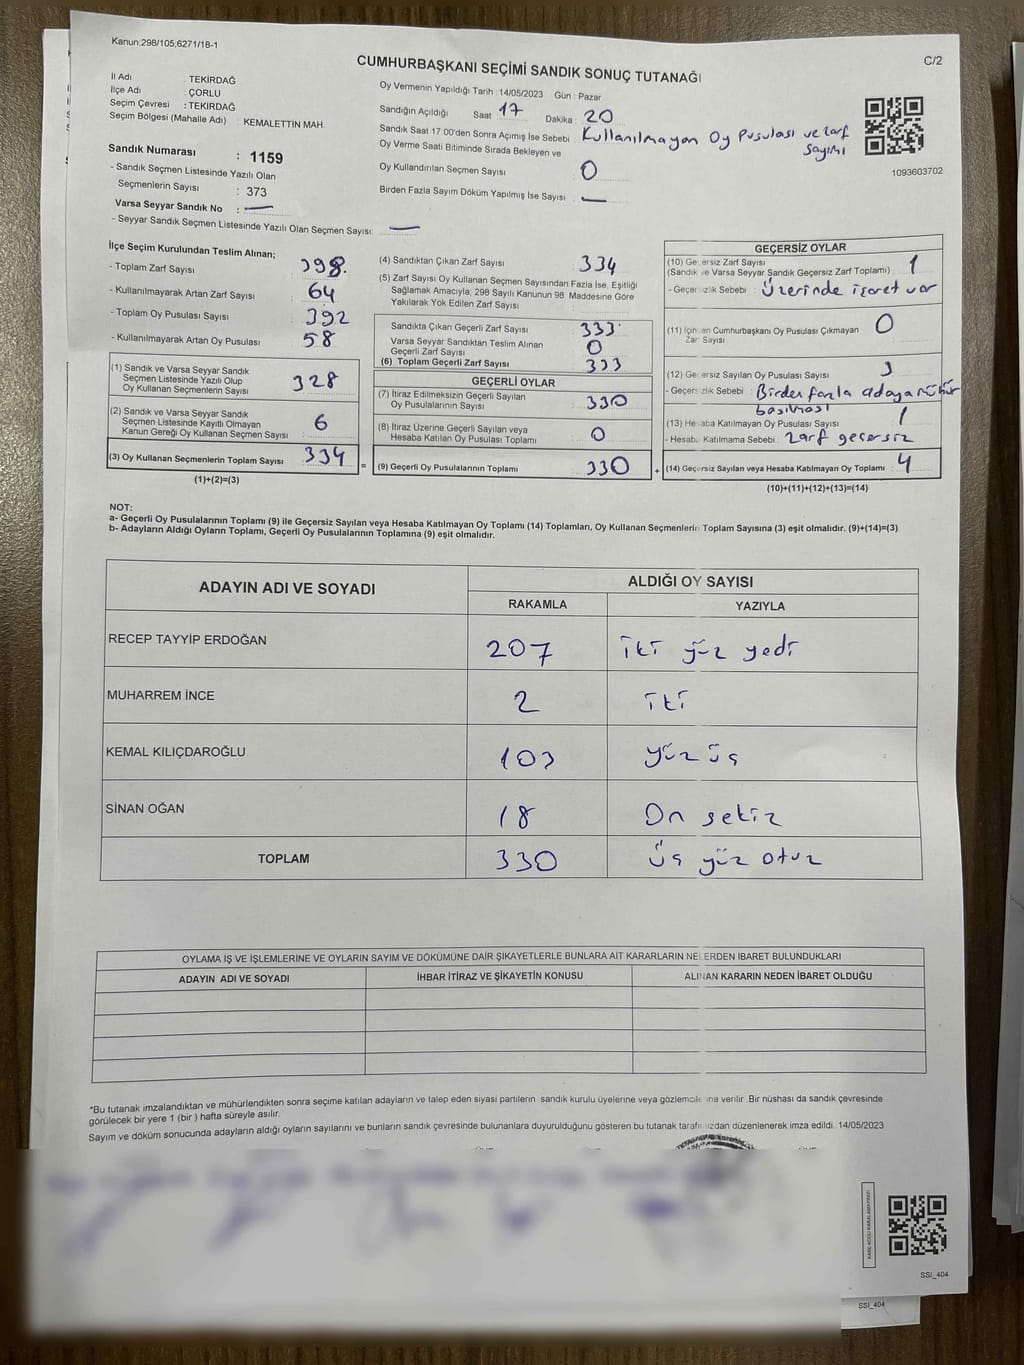 Kanun:298/105,6271/18-1
CUMHURBAŞKANI SEÇİMİ SANDIK SONUÇ TUTANAĞI
C/2
İl Adı : TEKİRDAĞ
İlçe Adı : ÇORLU
Seçim Çevresi : TEKİRDAĞ
Seçim Bölgesi (Mahalle Adı) : KEMALETTİN MAH.
Sandık Numarası : 1159
- Sandık Seçmen Listesinde Yazılı Olan
Seçmenlerin Sayısı : 373
Varsa Seyyar Sandık No : —
- Seyyar Sandık Seçmen Listesinde Yazılı Olan Seçmen Sayısı: —
Oy Vermenin Yapıldığı Tarih : 14/05/2023 Gün : Pazar
Sandığın Açıldığı Saat 17 Dakika : 20
Sandık Saat 17.00'den Sonra Açımış İse Sebebi : Kullanılmayan Oy Pusulası ve zarf
sayımı
Oy Verme Saati Bitiminde Sırada Bekleyen ve
Oy Kullandırılan Seçmen Sayısı : 0
Birden Fazla Sayım Döküm Yapılmış İse Sayısı : —
1093603702
İlçe Seçim Kurulundan Teslim Alınan;
- Toplam Zarf Sayısı : 398
- Kullanılmayarak Artan Zarf Sayısı : 64
- Toplam Oy Pusulası Sayısı : 392
- Kullanılmayarak Artan Oy Pusulası : 58
(1) Sandık ve Varsa Seyyar Sandık
Seçmen Listesinde Yazılı Olup
Oy Kullanan Seçmenlerin Sayısı : 328
(2) Sandık ve Varsa Seyyar Sandık
Seçmen Listesinde Kayıtlı Olmayan
Kanun Gereği Oy Kullanan Seçmen Sayısı : 6
(3) Oy Kullanan Seçmenlerin Toplam Sayısı : 334
(1)+(2)=(3)
(4) Sandıktan Çıkan Zarf Sayısı : 334
(5) Zarf Sayısı Oy Kullanan Seçmen Sayısından Fazla İse, Eşitliği
Sağlamak Amacıyla; 298 Sayılı Kanunun 98. Maddesine Göre
Yakılarak Yok Edilen Zarf Sayısı :
Sandıkta Çıkan Geçerli Zarf Sayısı : 333
Varsa Seyyar Sandıktan Teslim Alınan
Geçerli Zarf Sayısı : 0
(6) Toplam Geçerli Zarf Sayısı : 333
GEÇERLİ OYLAR
(7) İtiraz Edilmeksizin Geçerli Sayılan
Oy Pusulalarının Sayısı : 330
(8) İtiraz Üzerine Geçerli Sayılan veya
Hesaba Katılan Oy Pusulası Toplamı : 0
= (9) Geçerli Oy Pusulalarının Toplamı : 330 +
GEÇERSİZ OYLAR
(10) Geçersiz Zarf Sayısı
(Sandık ve Varsa Seyyar Sandık Geçersiz Zarf Toplamı) : 1
- Geçersizlik Sebebi : Üzerinde işaret var
(11) İçinden Cumhurbaşkanı Oy Pusulası Çıkmayan
Zarf Sayısı : 0
(12) Geçersiz Sayılan Oy Pusulası Sayısı : 3
- Geçersizlik Sebebi : Birden fazla adaya mühür
basılması
(13) Hesaba Katılmayan Oy Pusulası Sayısı : 1
- Hesaba Katılmama Sebebi : zarf geçersiz
(14) Geçersiz Sayılan veya Hesaba Katılmayan Oy Toplamı : 4
(10)+(11)+(12)+(13)=(14)
NOT:
a- Geçerli Oy Pusulalarının Toplamı (9) ile Geçersiz Sayılan veya Hesaba Katılmayan Oy Toplamı (14) Toplamları, Oy Kullanan Seçmenlerin Toplam Sayısına (3) eşit olmalıdır. (9)+(14)=(3)
b- Adayların Aldığı Oyların Toplamı, Geçerli Oy Pusulalarının Toplamına (9) eşit olmalıdır.
ADAYIN ADI VE SOYADI
ALDIĞI OY SAYISI
RAKAMLA YAZIYLA
RECEP TAYYİP ERDOĞAN 207 iki yüz yedi
MUHARREM İNCE 2 iki
KEMAL KILIÇDAROĞLU 103 yüz üç
SİNAN OĞAN 18 On sekiz
TOPLAM 330 üç yüz otuz
OYLAMA İŞ VE İŞLEMLERİNE VE OYLARIN SAYIM VE DÖKÜMÜNE DAİR ŞİKAYETLERLE BUNLARA AİT KARARLARIN NELERDEN İBARET BULUNDUKLARI
ADAYIN ADI VE SOYADI İHBAR İTİRAZ VE ŞİKAYETİN KONUSU ALINAN KARARIN NEDEN İBARET OLDUĞU
*Bu tutanak imzalandıktan ve mühürlendikten sonra seçime katılan adayların ve talep eden siyasi partilerin sandık kurulu üyelerine veya gözlemcilerine verilir .Bir nüshası da sandık çevresinde
görülecek bir yere 1 (bir ) hafta süreyle asılır.
Sayım ve döküm sonucunda adayların aldığı oyların sayılarını ve bunların sandık çevresinde bulunanlara duyurulduğunu gösteren bu tutanak tarafımızdan düzenlenerek imza edildi. 14/05/2023
SSİ_404
SSİ_404